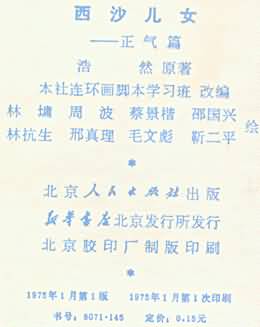 西沙儿女
——正气篇
浩 然 原著
本社连环画脚本学习班 改编
林墉 周波 蔡景楷 邵国兴
林抗生 邢真理 毛文彪 靳二平 绘
*
北京人民出版社出版
新华书店北京发行所发行
北京胶印厂制版印刷
*
1975年1月第1版 1975年1月第1次印刷
书号：8071·145 定价：0.15元